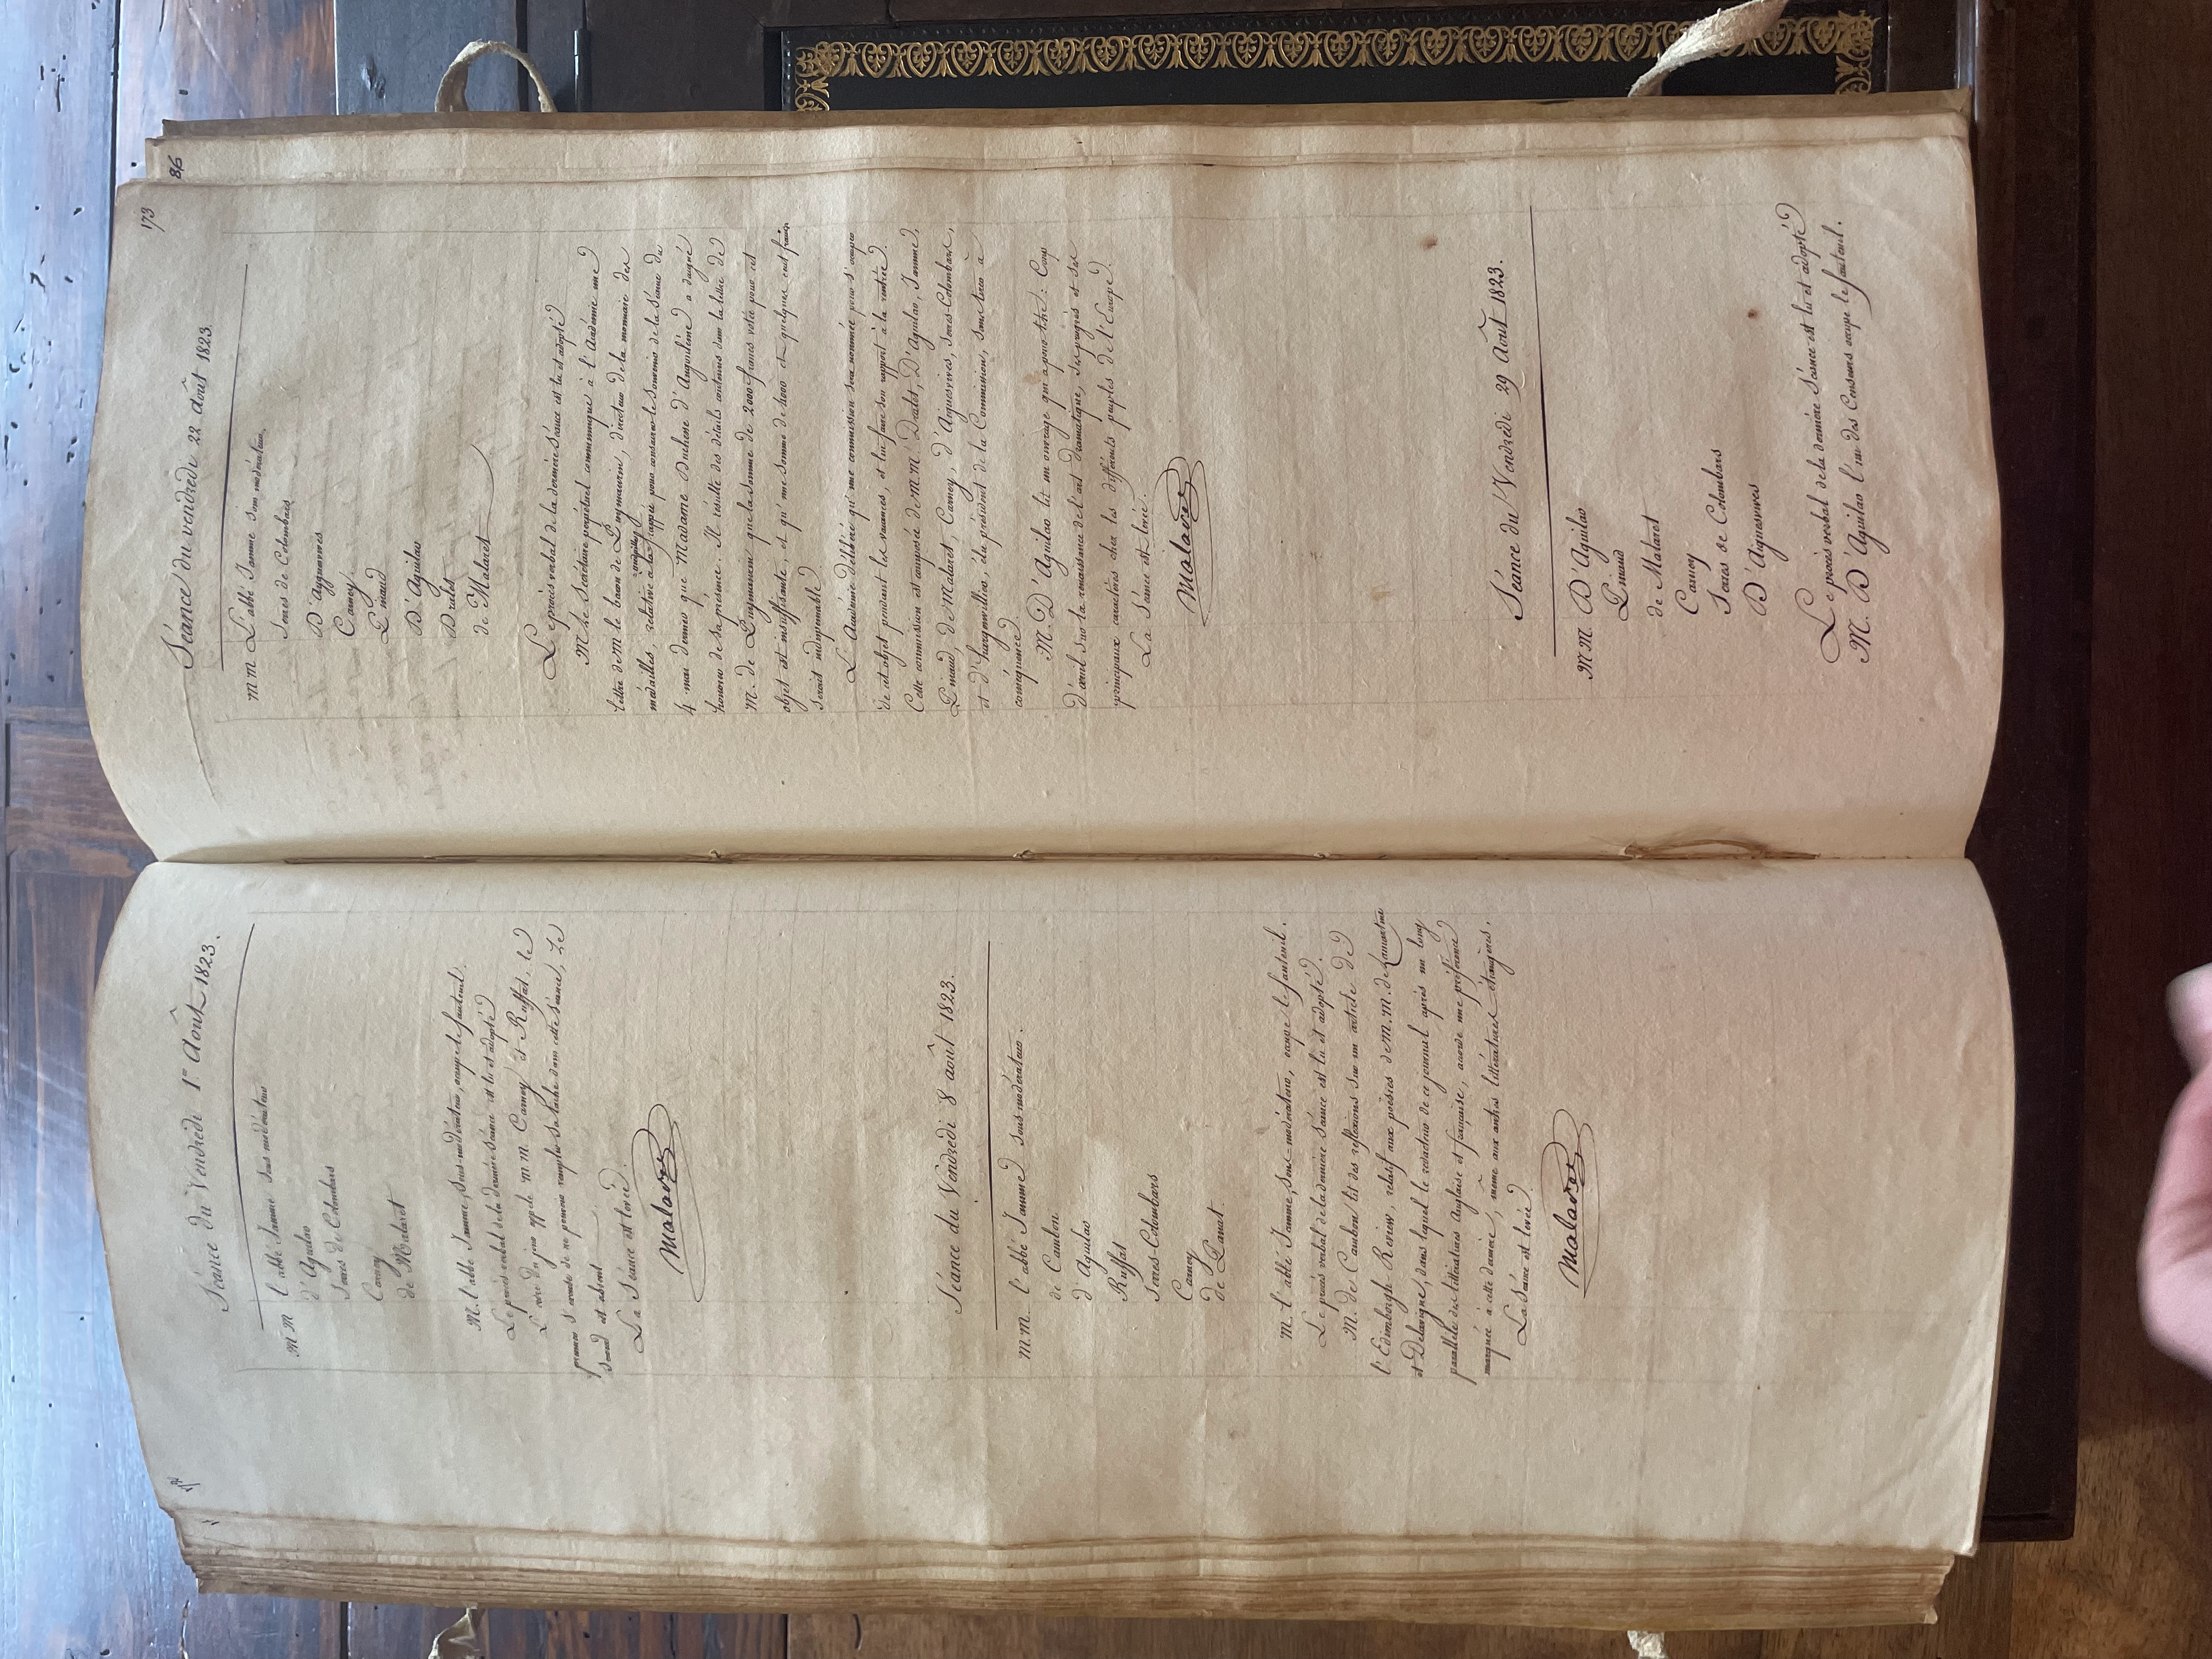 172
Séance du Vendredi 1er Août 1823.
MM l'abbé Jamme sous modérateur
d'Aguilar
Serres de Colombars
Carney
de Malaret
M. l'abbé Jamme, sous-modérateur, occupe le fauteuil.
Le procès verbal de la dernière séance est lu et adopté
L'ordre du jour appele m.m. Carney et Ruffat, le
premier s'excuse de ne pouvoir remplir sa tache dans cette séance, Le
second est absent
La Séance est levée.
Malaret
Séance du Vendredi 8 août 1823.
m.m. l'abbé Jamme sous modérateur.
de Cambon
d'Aguilar
Ruffat
Serres-Colombars
Carney
de Panat.
M. l'abbé Jamme, sous-modérateur, occupe le fauteuil.
Le procès verbal de la dernière séance est lu et adopté.
M. de Cambon lit des reflexions sur un article de
l'Edimborgh-Review, relatif aux poësies de m.m. de Lamartine
et Delavigne, dans lequel le redacteur de ce journal après un long
parallèle des littératures Anglaise et française, accorde une préférence
marquée à cette dernière, même aux autres littératures étrangères.
La Séance est levée.
Malaret
173
86
Séance du vendredi 22 août 1823.
mm L'abbé Jamme sous modérateur.
Serres de Colombars
D'Ayguesvives
Carney
Pinaud
D'Aguilar
Dralet
de Malaret
Le procès verbal de la dernière séance est lu et adopté
M. Le Secrétaire perpétuel communique à l'Académie une
lettre de M le baron de Puymaurin, directeur de la monnaie des
médailles, relative à la médaille frappée pour conserver le souvenir de la séance du
4 mai dernier que Madame Duchesse d'Angoulême a daigné
honorer de sa présence. Il résulte des détails contenus dans la lettre de
M. de Puymaurin que la somme de 2000 francs votée pour cet
objet est insuffisante, et qu'une somme de 4000 et quelques cent francs
serait indispensable
L'Académie délibère qu'une commission sera nommée pour s'occuper
de cet objet pendant les vacances, et lui faire son rapport à la rentrée.
Cette commission est composée de m.m. Dralet, D'Aguilar, Jamme,
Pinaud, de Malaret, Carney, d'Aiguesvives, Serres-Colombars,
et d'hargenvillier, élu président de la Commission, sera écrit à
conséquence
M. D'Aguilar lit un ouvrage qui a pour titre: Coup
d'œuil sur la renaissance de l'art dramatique, ses progrès et ses
principaux caractères chez les différents peuples de l'Europe.
La Séance est levée.
Malaret
Séance du Vendredi 29 Août 1823.
MM. D'Aguilar
Pinaud
de Malaret
Carney
Serres de Colombars
D'Aiguesvives
Le procès verbal de la dernière séance est lu et adopté
M. D'Aguilar l'un des Censeurs occupe le fauteuil.